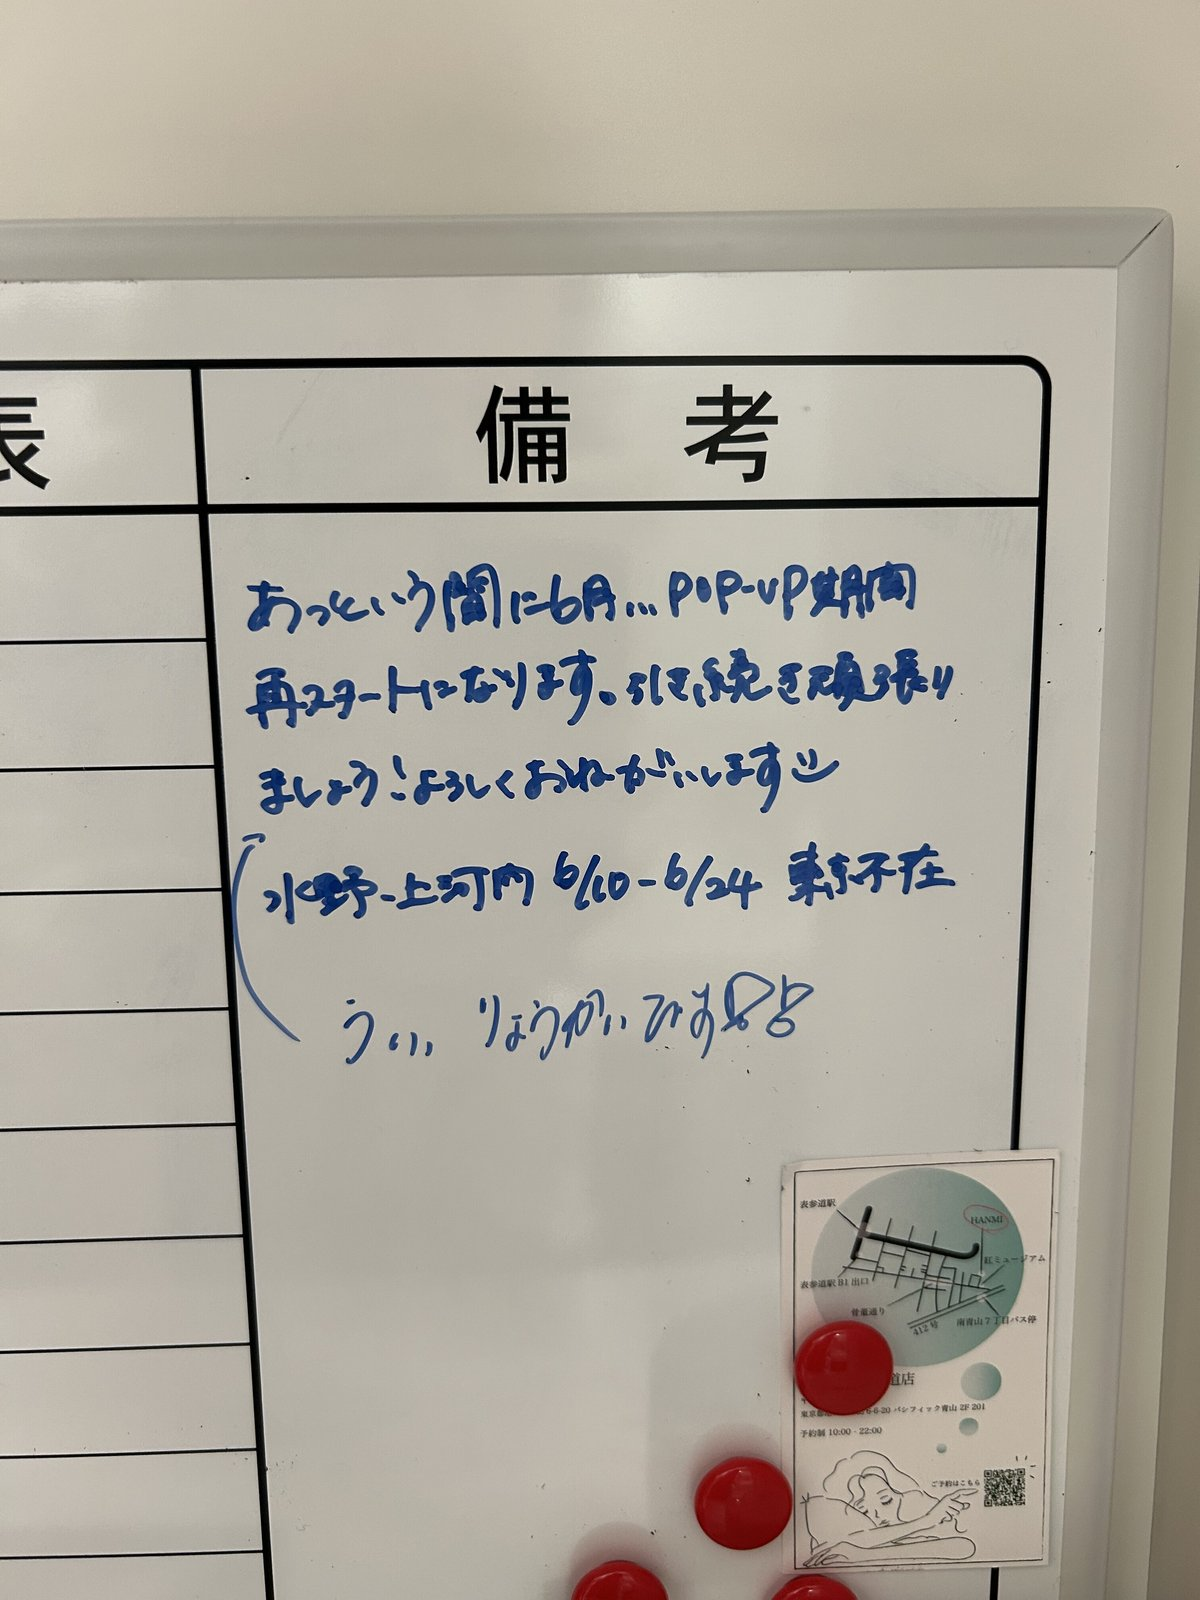 表
備考
あっという間に6月... POP-UP期間
再スタートになります。引き続き頑張り
ましょう！よろしくおねがいします
水野、上河内 6/10-6/24 東京不在
うぃ、りょうかいです
表参道駅
HANMI
紅ミュージアム
表参道駅B1出口
骨董通り
412号
南青山7丁目バス停
道店
6-6-20 パシフィック青山 2F 201
予約制 10:00 - 22:00
ご予約はこちら